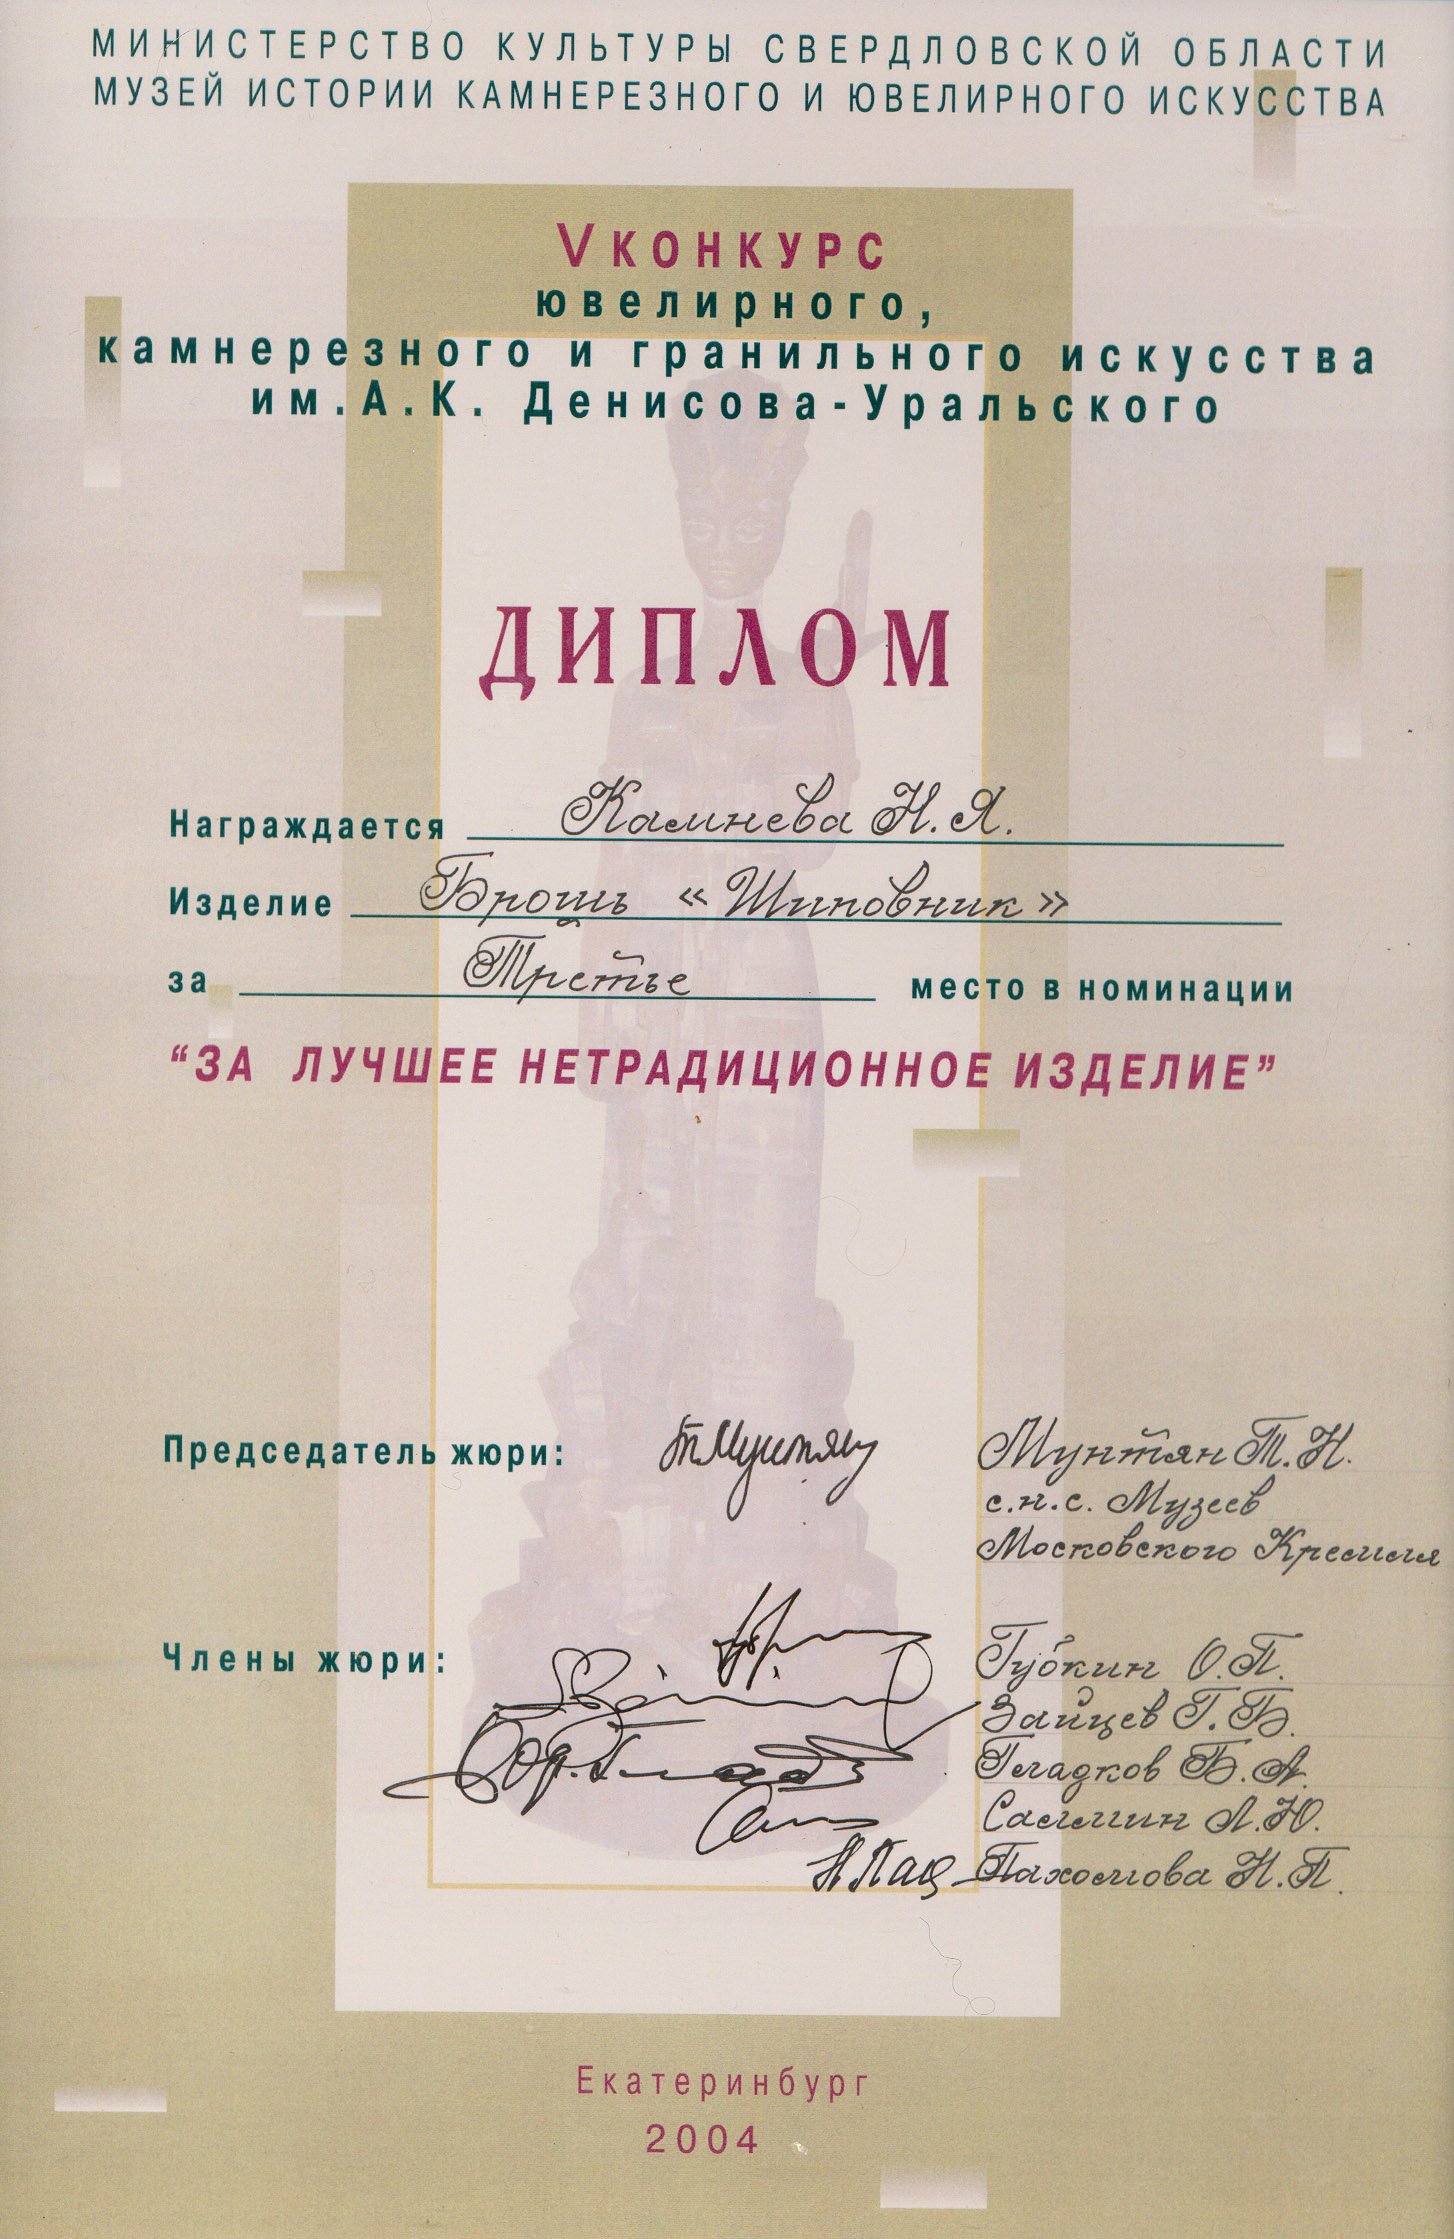 МИНИСТЕРСТВО КУЛЬТУРЫ СВЕРДЛОВСКОЙ ОБЛАСТИ
МУЗЕЙ ИСТОРИИ КАМНЕРЕЗНОГО И ЮВЕЛИРНОГО ИСКУССТВА
V КОНКУРС
ювелирного,
камнерезного и гранильного искусства
им.А.К. Денисова-Уральского
ДИПЛОМ
Награждается Камнева Н.Я.
Изделие Брошь «Шиповник»
за Третье место в номинации
“ЗА ЛУЧШЕЕ НЕТРАДИЦИОННОЕ ИЗДЕЛИЕ”
Председатель жюри: ТМунтян Мунтян Т.Н.
с.н.с. Музеев
Московского Кремля
Члены жюри: Губкин О.П.
Зайцев Г.Б.
Гладков Б.А.
Саммин Л.Ю.
Пахомова Н.П.
Екатеринбург
2004